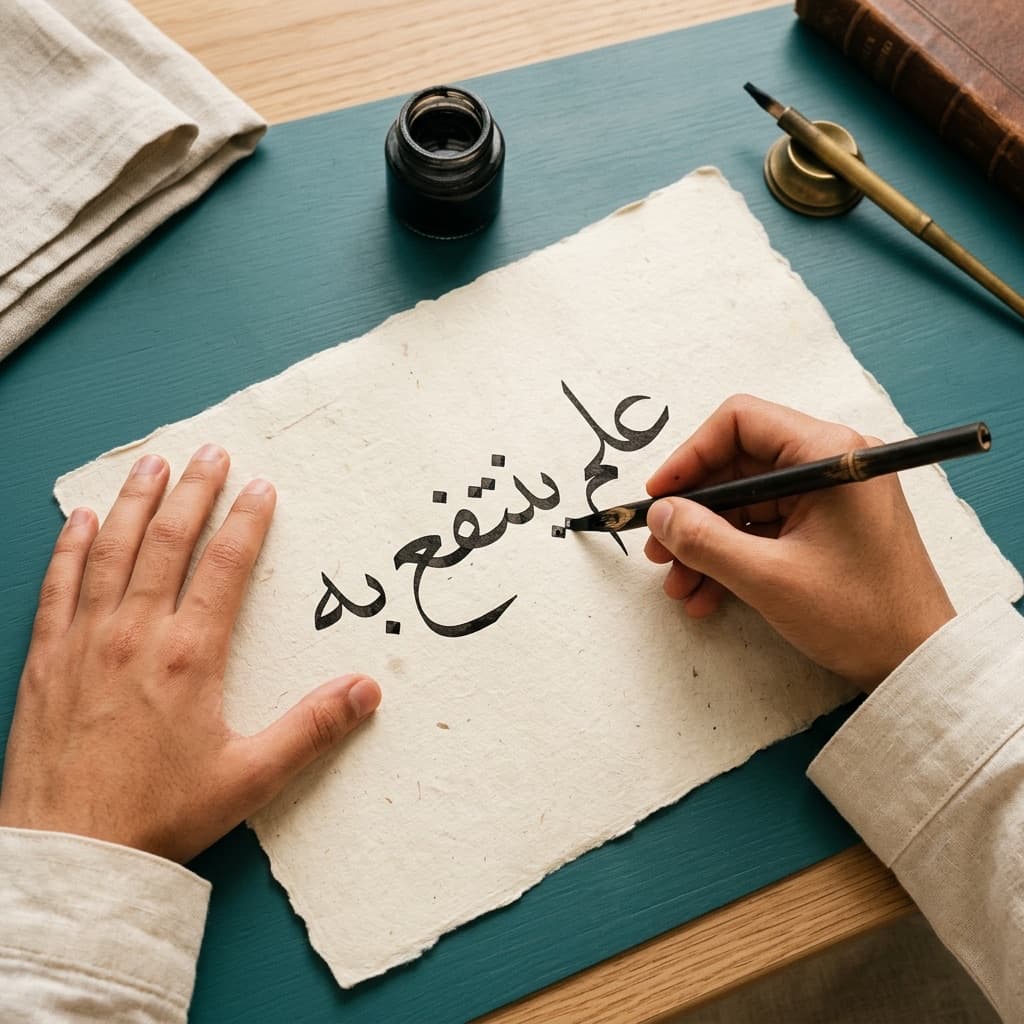 علم ينتفع به